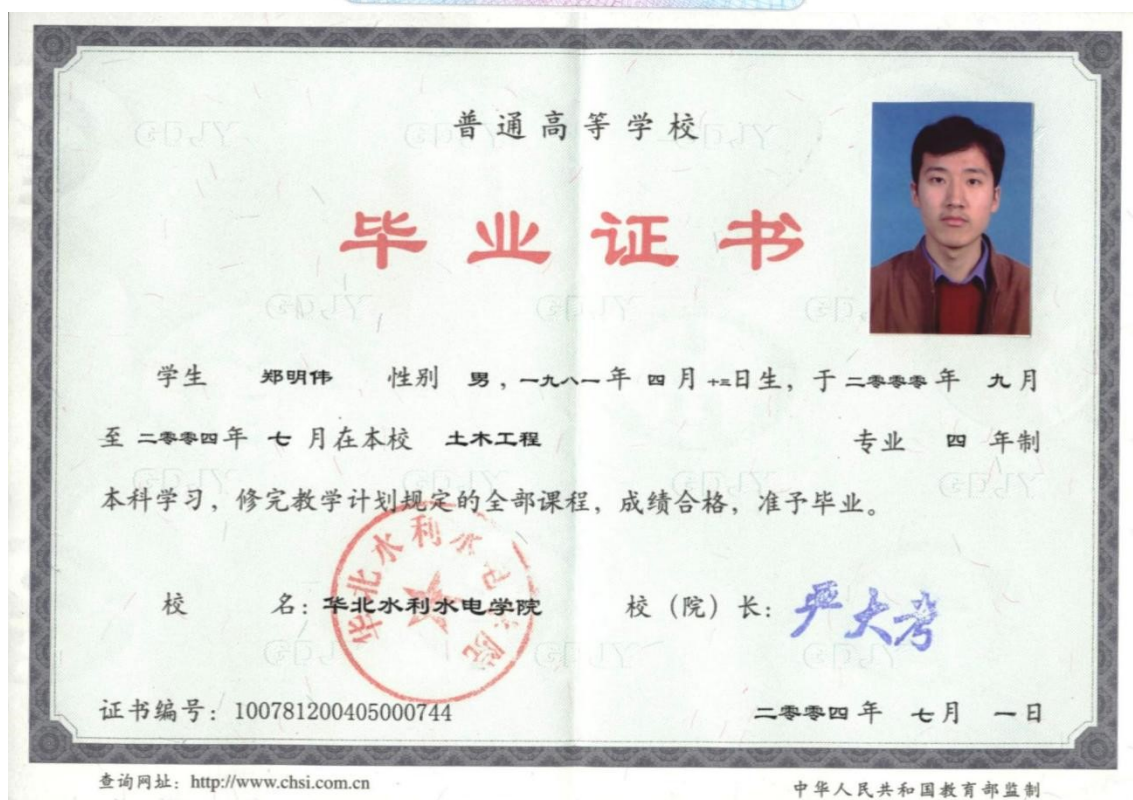 普通高等学校
毕业证书
学生 郑明伟 性别 男，一九八一年 四 月 十三日生，于二零零零年 九 月
至 二零零四年 七 月在本校 土木工程 专业 四 年制
本科学习，修完教学计划规定的全部课程，成绩合格，准予毕业。
校 名：华北水利水电学院 校（院）长：严大考
华北水利水电学院
证书编号：100781200405000744 二零零四年 七 月 一 日
查询网址：http://www.chsi.com.cn 中华人民共和国教育部监制